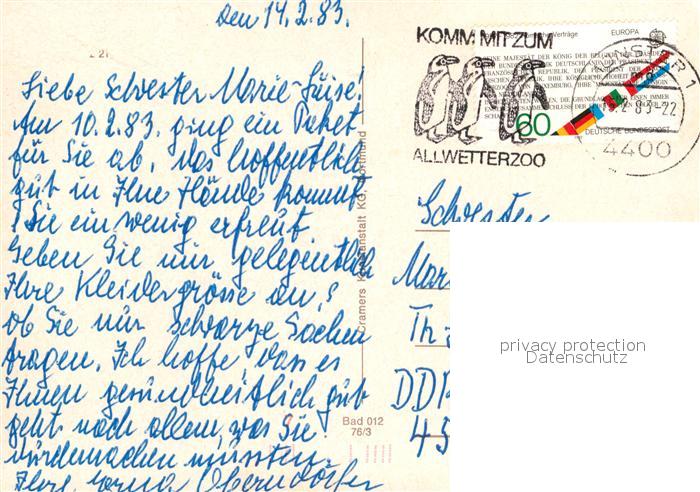 den 14.2.83.
Liebe Schwester Marie-Luise!
Am 10.2.83. ging ein Paket
für Sie ab, das hoffentlich
gut in Ihre Hände kommt
! Sie ein wenig erfreut
Geben Sie mir gelegentlich
Ihre Kleidergrösse an, &
ob Sie nur schwarze Sachen
tragen. Ich hoffe, dass es
Ihnen gesundheitlich gut
geht nach allem, was Sie
durchmachen mussten.
Ihre Oberndörfer
Cramers Kunstanstalt KG, Dortmund
Bad 012
76/3
KOMM MIT ZUM
ALLWETTERZOO
Verträge
EUROPA
60
DEUTSCHE BUNDESPOST
.2.83-22
4400
Schwester
Mari
Th
DDR
45
privacy protection
Datenschutz